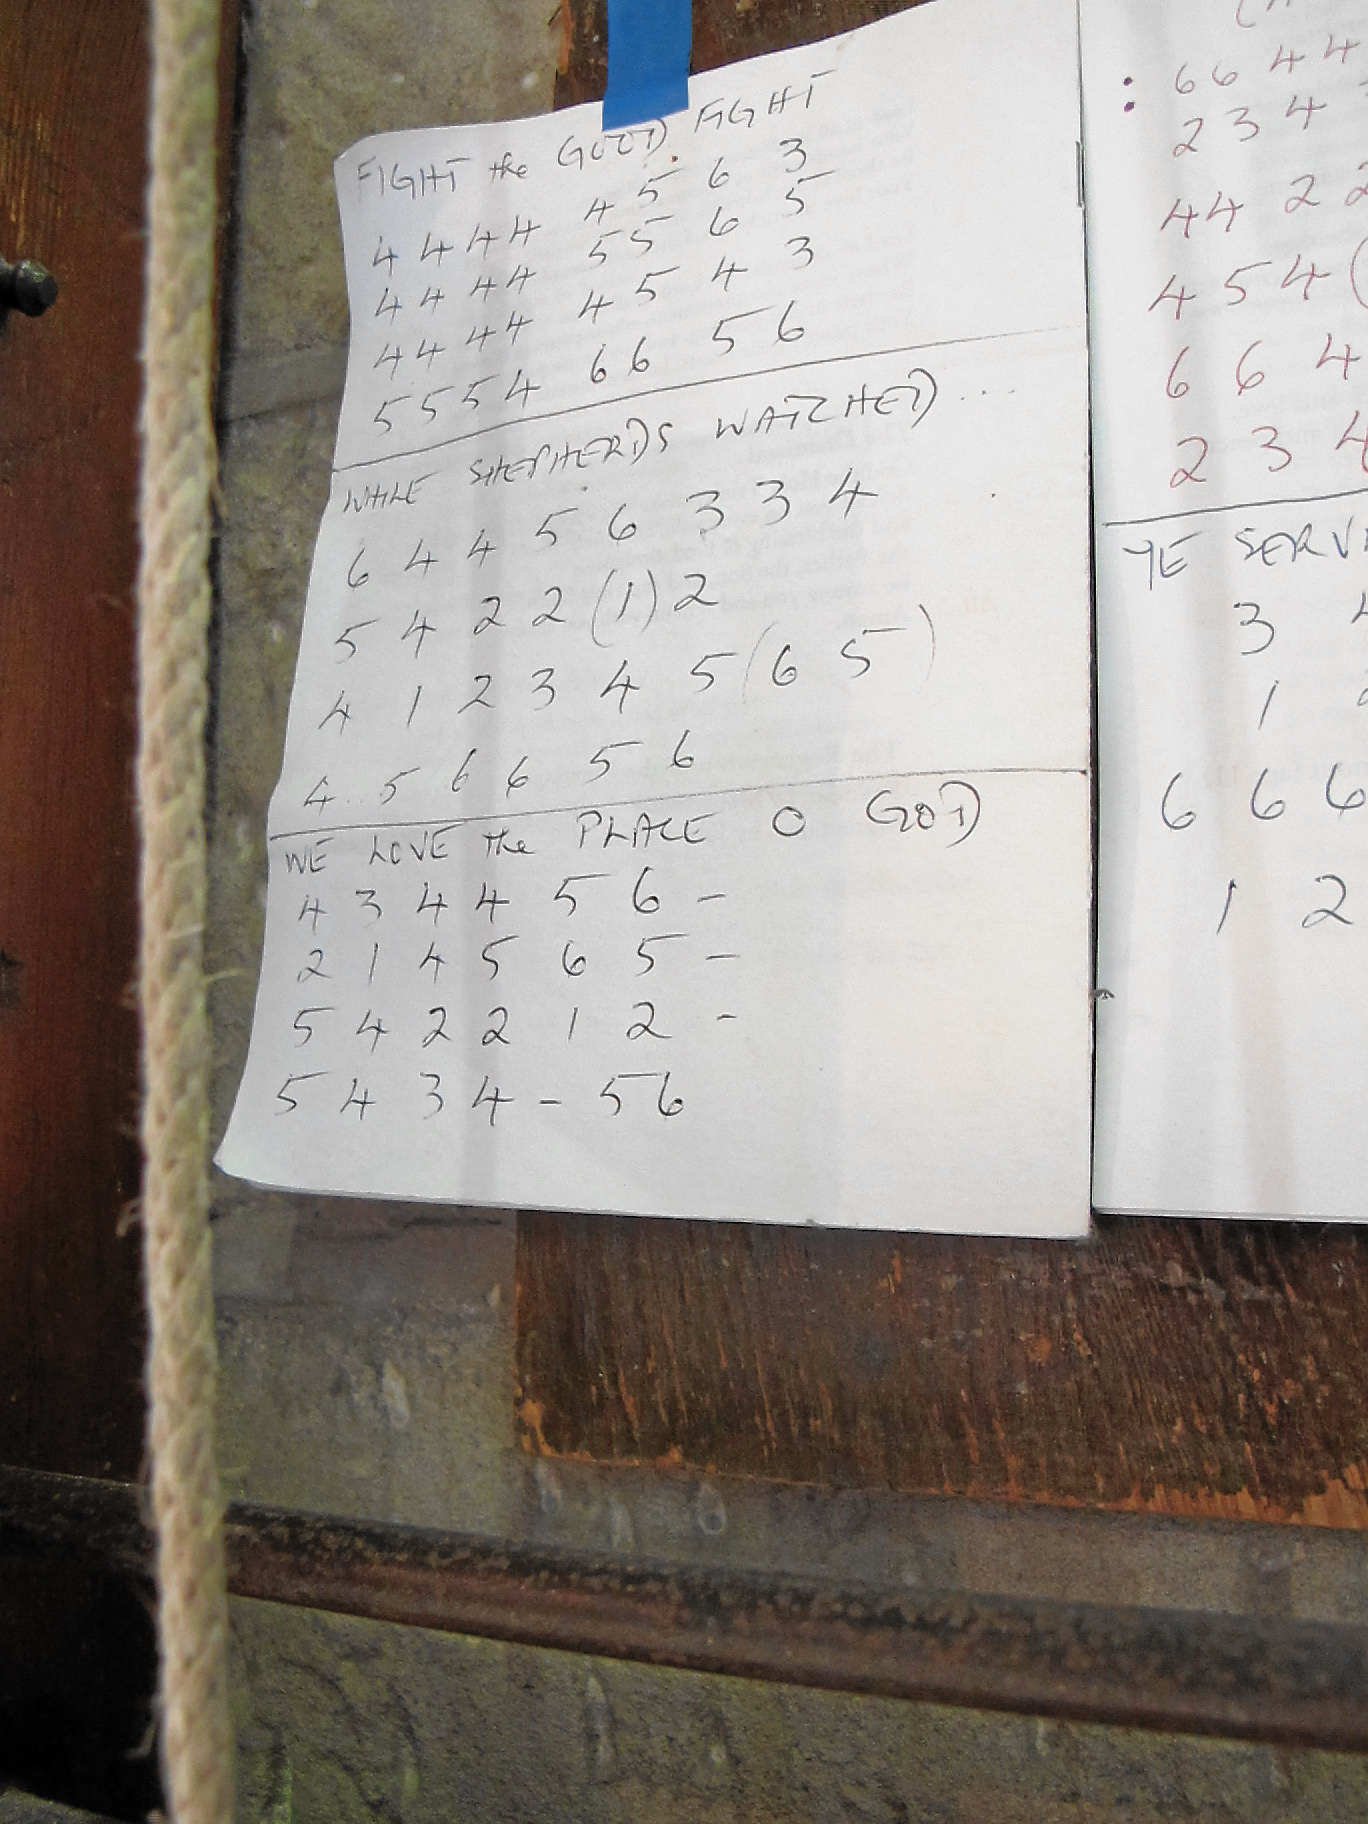 FIGHT the GOOD FIGHT
4 4 4 4 4 5 6 3
4 4 4 4 5 5 6 5
4 4 4 4 4 5 4 3
5 5 5 4 6 6 5 6
WHILE SHEPHERDS WATCHED ...
6 4 4 5 6 3 3 4
5 4 2 2 (1) 2
4 1 2 3 4 5 (6 5)
4 5 6 6 5 6
WE LOVE the PLACE O GOD
4 3 4 4 5 6 -
2 1 4 5 6 5 -
5 4 2 2 1 2 -
5 4 3 4 - 5 6
: 6 6 4 4
2 3 4
4 4 2 2
4 5 4 (
6 6 4
2 3 4
YE SERV
3
1
6 6 6
1 2